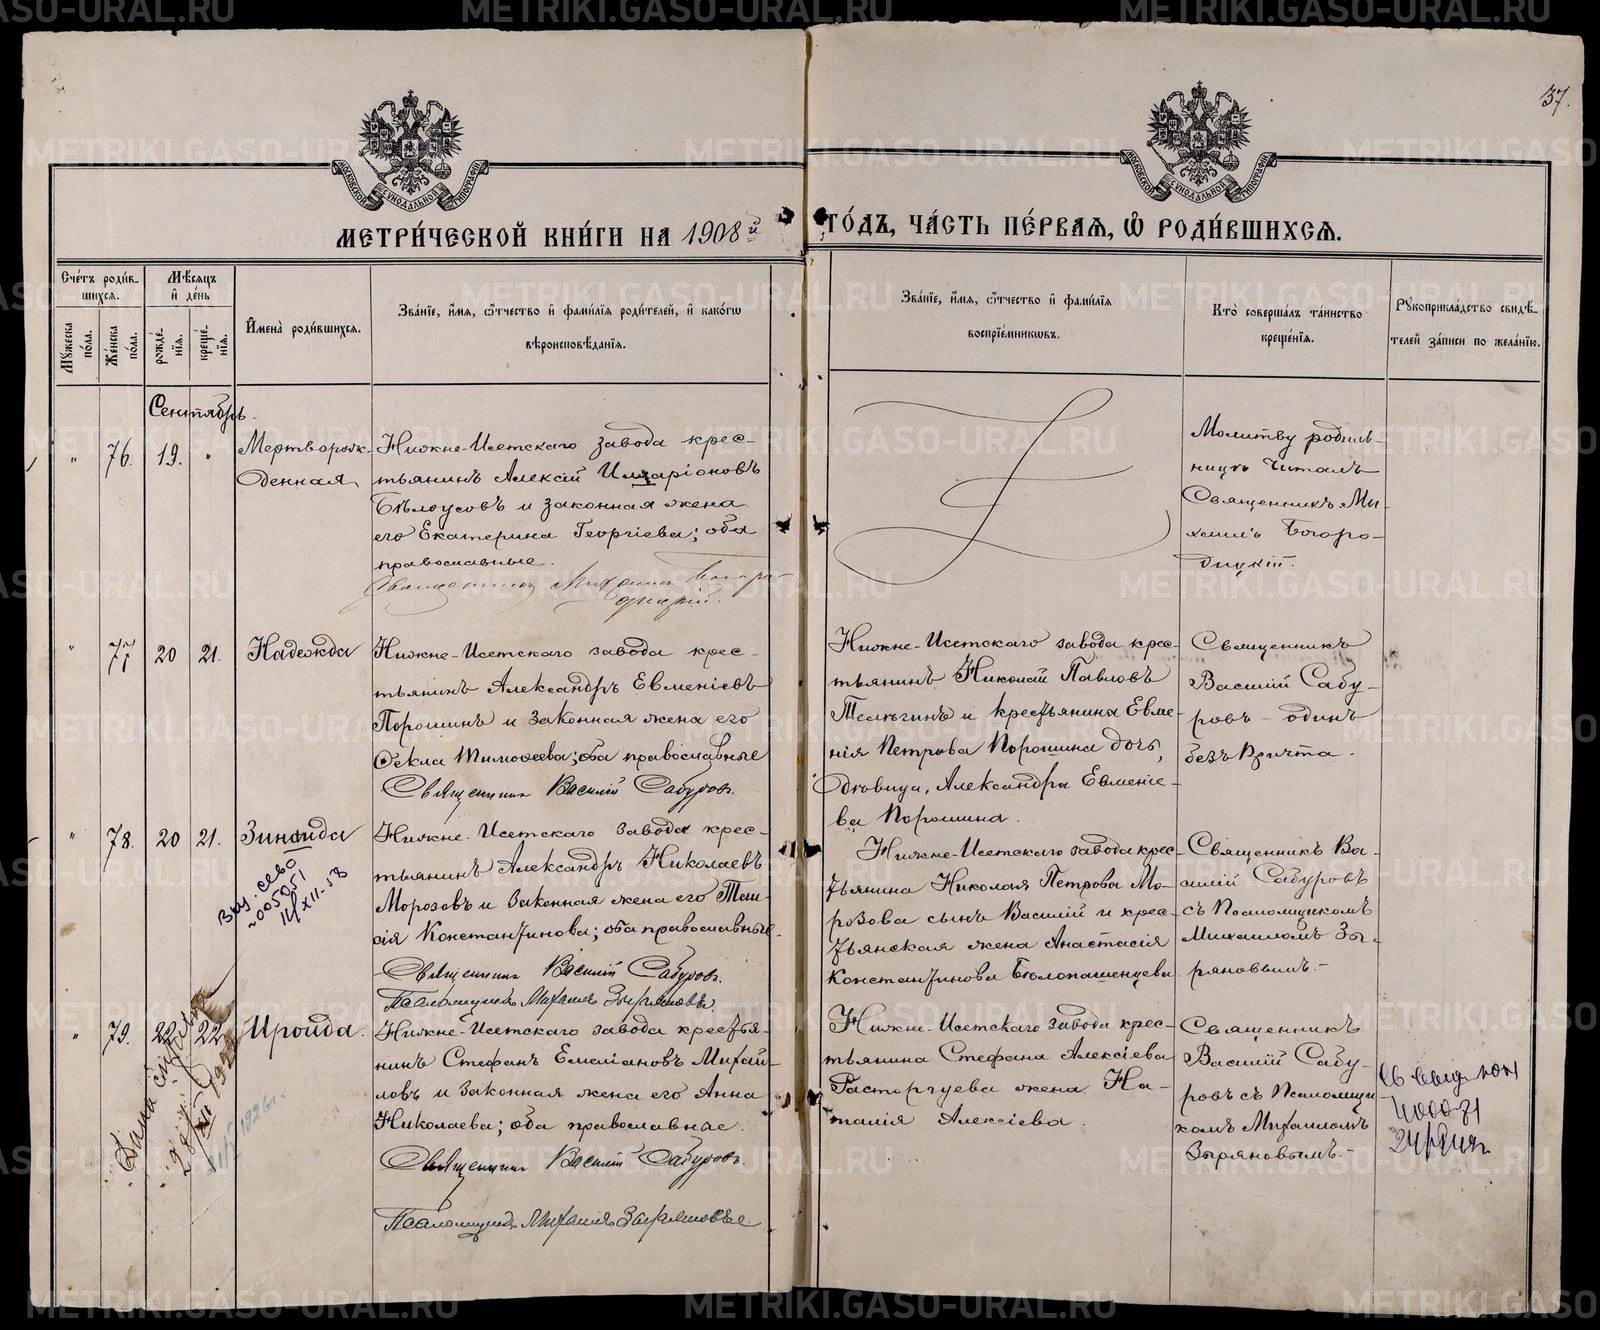 37.
МОСКОВСКОЙ СѴНОДАЛЬНОЙ ТИПОГРАФІИ
МОСКОВСКОЙ СѴНОДАЛЬНОЙ ТИПОГРАФІИ
МЕТРИ́ЧЕСКОЙ КНИ́ГИ НА 1908й
ГО́ДЪ, ЧА́СТЬ ПЕ́РВАѦ, Ѡ҆ РОДИ́ВШИХСѦ.
Сче́тъ роди́в-
шихся.
Мꙋ́жеска по́ла.
Же́нска по́ла.
Мѣ́сяцъ
и҆ де́нь
рожде́-
нїя.
креще́-
нїя.
И҆мена̀ роди́вшихся.
Зва́нїе, и҆́мя, ѻ҆́тчество и҆ фами́лїя роди́телей, и҆ како́гѡ
вѣроисповѣ́данїя.
Зва́нїе, и҆́мя, ѻ҆́тчество и҆ фами́лїя
воспрїе́мникѡвъ.
Кто̀ соверша́лъ та́инство
креще́нїя.
Рꙋкоприкла́дство свидѣ́-
телей за́писи по жела́нїю.
Сентябрь.
" 76. 19. "
Мертворож-
денная
Нижне-Исетскаго завода крес-
тьянинъ Алексій Иларіоновъ
Бѣлоусовъ и законная жена
его Екатерина Георгіева; оба
православные.
Священникъ Михаилъ Богоро-
дицкій.
Молитву родиль-
ницѣ читалъ
Священникъ Ми-
хаилъ Богоро-
дицкій.
" 77 20 21.
Надежда
Нижне-Исетскаго завода крес-
тьянинъ Александръ Евменіевъ
Порошинъ и законная жена его
Ѳекла Тимоѳеева; оба православные
Священникъ Василій Сабуровъ.
Нижне-Исетскаго завода крес-
тьянинъ Николай Павловъ
Телѣгинъ и крестьянина Евме-
нія Петрова Порошина дочь,
дѣвица, Александра Евменіе-
ва Порошина.
Священникъ
Василій Сабу-
ровъ - одинъ
безъ причта.
" 78. 20 21.
Зинаида
Выд. св-во
№005051
11/XII-53
Нижне-Исетскаго завода крес-
тьянинъ Александръ Николаевъ
Морозовъ и законная жена его Таи-
сія Константинова; оба православные.
Священникъ Василій Сабуровъ.
Псаломщикъ Михаилъ Зыряновъ.
Нижне-Исетскаго завода крес-
тьянина Николая Петрова Мо-
розова сынъ Василій и крес-
тьянская жена Анастасія
Константинова Бѣлопашенцева.
Священникъ Ва-
силій Сабуровъ
съ Псаломщикомъ
Михаиломъ Зы-
ряновымъ.-
" 79. 22 22
Ираида.
Нижне-Исетскаго завода крестья-
нинъ Стефанъ Емеліановъ Михай-
ловъ и законная жена его Анна
Николаева; оба православные.
Священникъ Василій Сабуровъ.
Псаломщикъ Михаилъ Зыряновъ
Нижне-Исетскаго завода крес-
тьянина Стефана Алексіева
Расторгуева жена На-
талія Алексіева.
Священникъ
Василій Сабу-
ровъ съ Псаломщи
комъ Михаиломъ
Зыряновымъ.-
METRIKI.GASO-URAL.RU